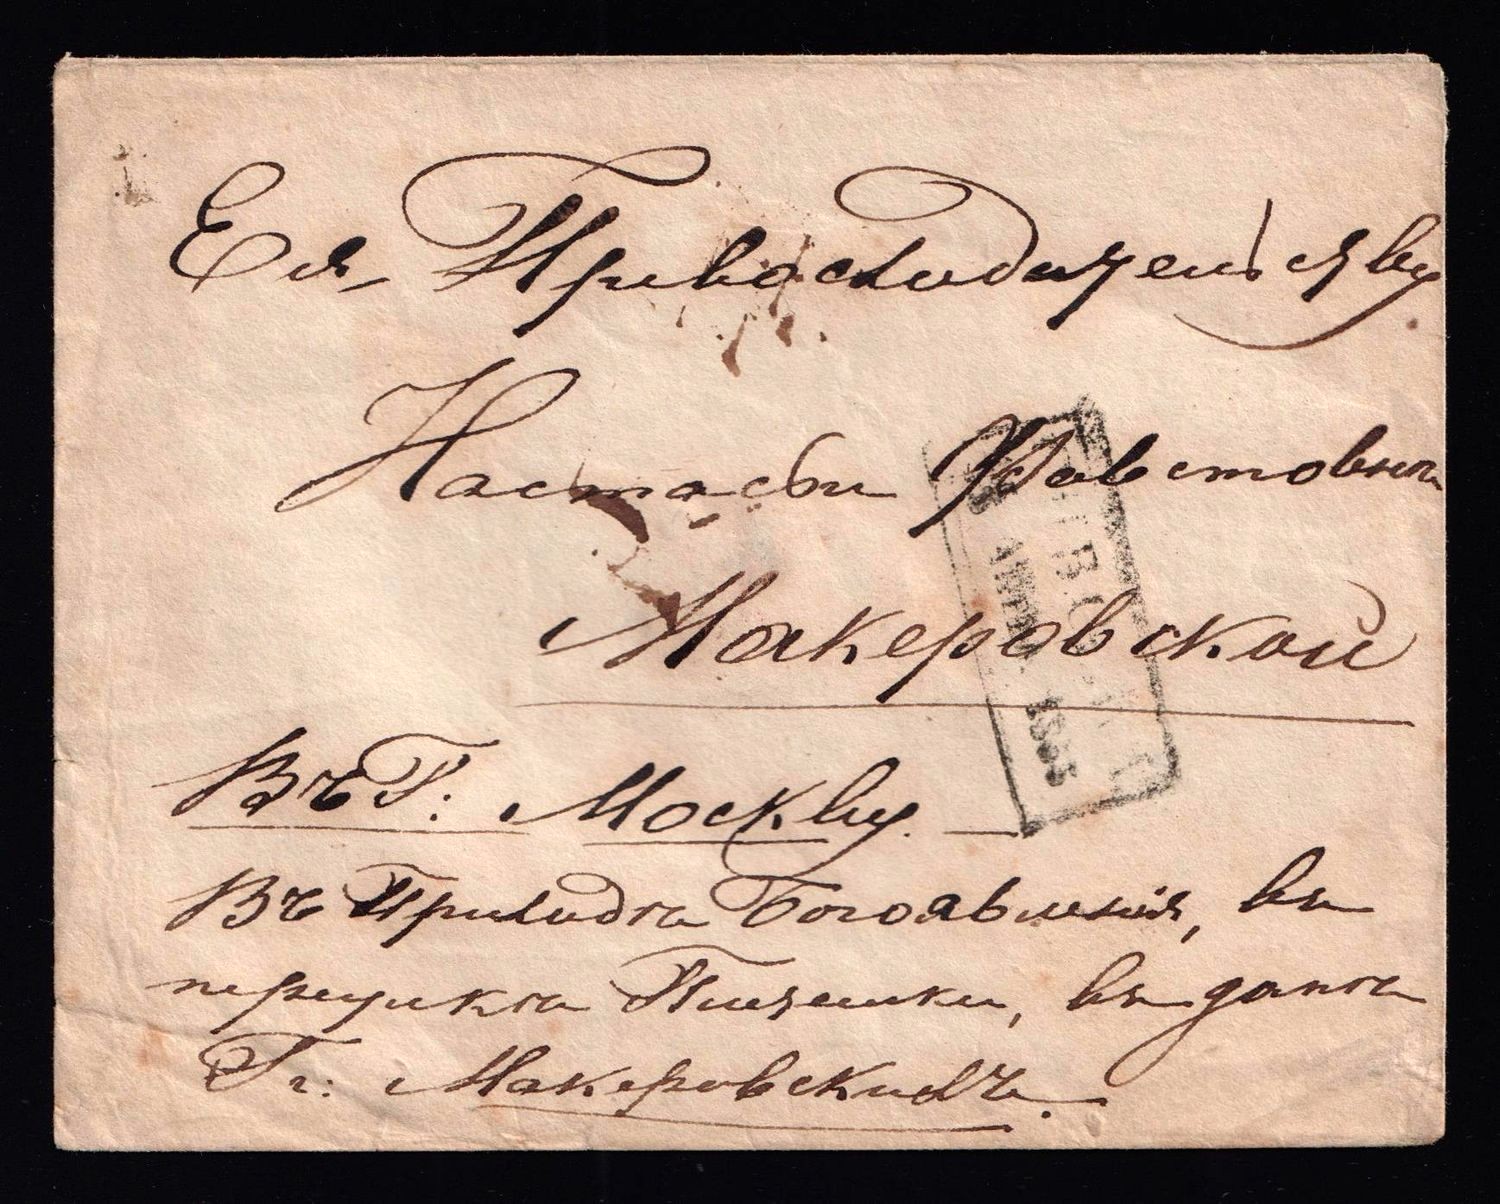 Ея Превосходительству
Настасьи Фавстовни
Макеровской
Въ Г: Москву.
Въ Приходѣ Богоявленія, въ
переулкѣ
въ домѣ
Гг: Макеровскихъ.
1855